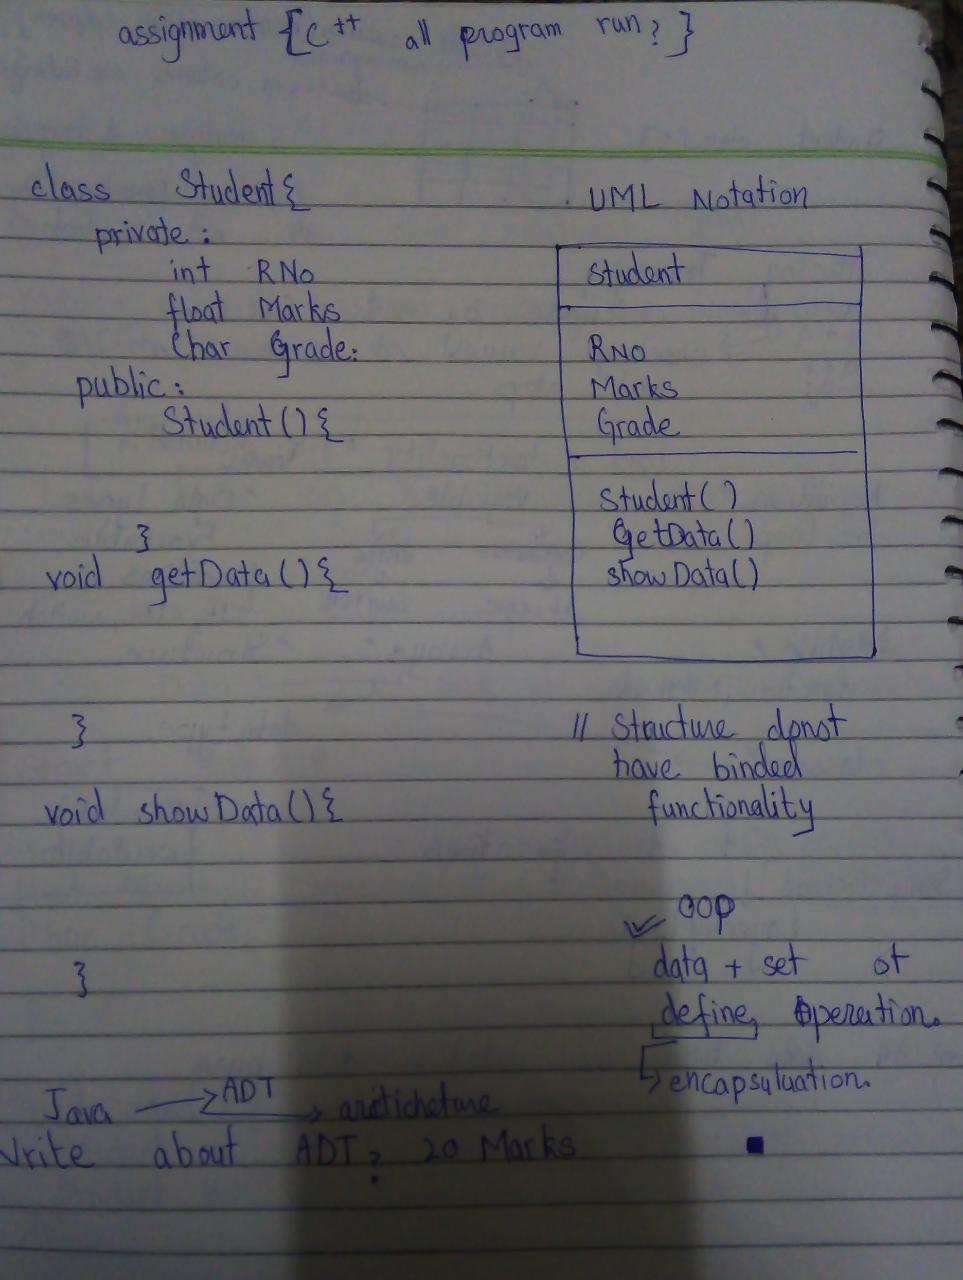 assignment {C++ all program run? }
class Student{
private:
int RNo
float Marks
Char Grade:
public:
Student(){
}
void getData(){
}
void showData(){
}
UML Notation
Student
RNo
Marks
Grade
Student()
GetData()
showData()
// Structure donot
have binded
functionality
OOP
data + set of
define operation.
encapsuluation.
Java ADT
Write about ADT? 20 Marks